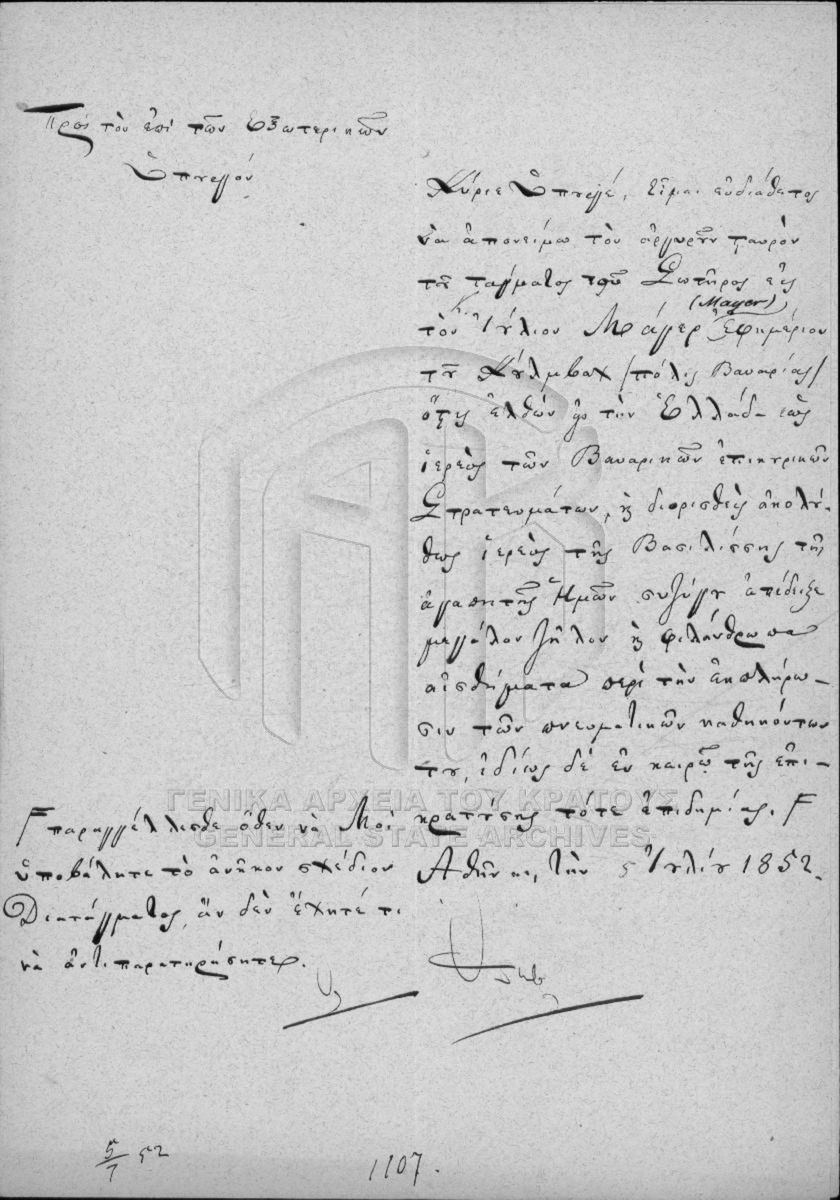 Πρὸς τὸν ἐπὶ τῶν Ἐξωτερικῶν
Ὑπουργόν
Κύριε Ὑπουργέ, Εἶμαι εὐδιάθετος
νὰ ἀπονείμω τὸν ἀργυροῦν σταυρὸν
τοῦ τάγματος τοῦ Σωτῆρος εἰς
(Mayer)
τὸν Κ. Ἰούλιον Μάγερ Ἐφημέριον
τοῦ Κούλμβαχ /πόλις Βαυαρίας/
ὅστις ἐλθὼν εἰς τὴν Ἑλλάδα ὡς
ἱερεὺς τῶν Βαυαρικῶν ἐπικουρικῶν
Στρατευμάτων, καὶ διορισθεὶς ἀκολού-
θως ἱερεὺς τῆς Βασιλίσσης τῆς
ἀγαπητῆς Ἡμῶν συζύγου ἀπέδειξε
μεγάλον ζῆλον καὶ φιλάνθρωπα
αἰσθήματα περὶ τὴν ἐκπλήρω-
σιν τῶν πνευματικῶν καθηκόντων
του, ἰδίως δὲ ἐν καιρῷ τῆς ἐπι-
κρατούσης τότε ἐπιδημίας. Γ
Γ παραγγέλλεσθε ὅθεν νὰ Μοὶ
ὑποβάλητε τὸ ἀνῆκον σχέδιον
Διατάγματος, ἂν δὲν ἔχητέ τι
νὰ ἀντιπαρατηρήσητε.
Ἀθῆναι, τὴν 5 Ἰουλίου 1852.
5/7 52
1107.
ΓΕΝΙΚΑ ΑΡΧΕΙΑ ΤΟΥ ΚΡΑΤΟΥΣ
GENERAL STATE ARCHIVES